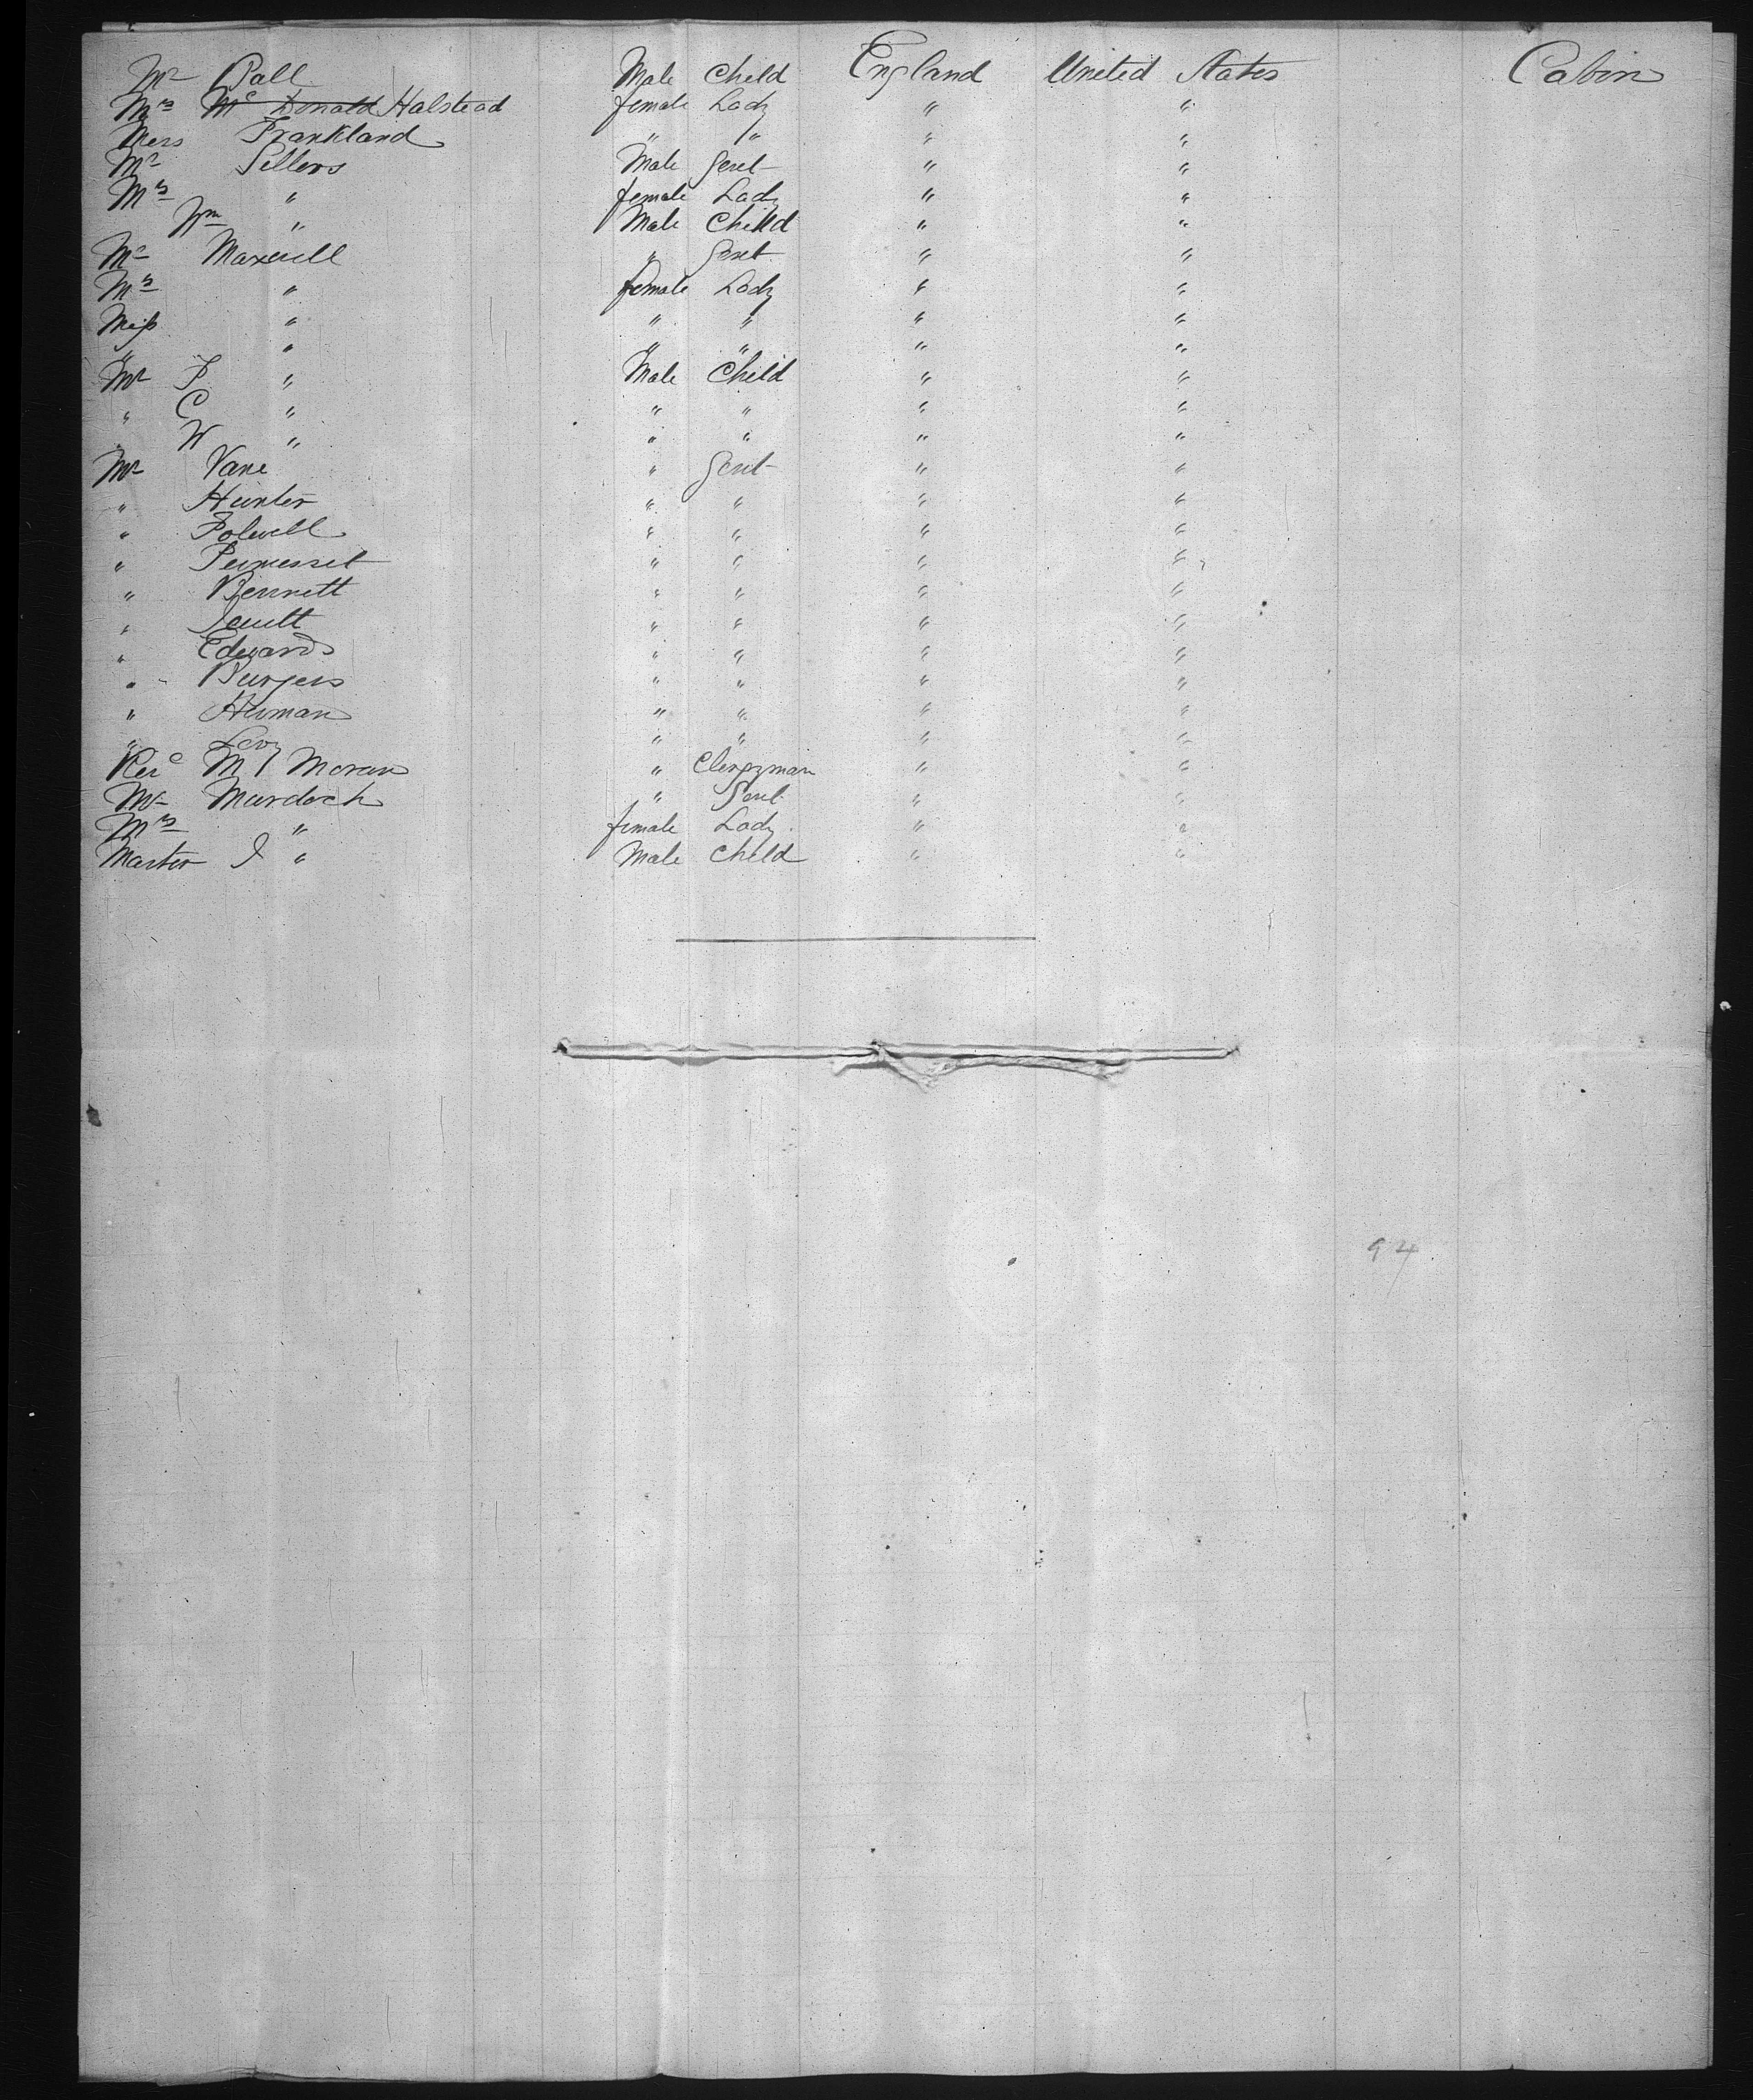 Mr Ball Male Child England United States Cabin
Mrs Mc Donald Halstead female Lady " "
Mrs Frankland " " " "
Mr Sellers Male Gent " "
Mrs " female Lady " "
Wm " Male Child " "
Mr Maxwell " Gent " "
Mrs " female Lady " "
Miss " " " " "
" " " " " "
Mr F " Male Child " "
" C " " " " "
W " " " " "
Mr Vane " Gent " "
" Hunter " " " "
" Folwell " " " "
" " " " "
" Bennett " " " "
" " " " "
" Edwards " " " "
" Burgess " " " "
" Human " " " "
" Levy " " " "
Revd Moran " Clergyman " "
Mr Murdoch " Gent " "
Mrs " female Lady " "
Master J " Male Child " "
94